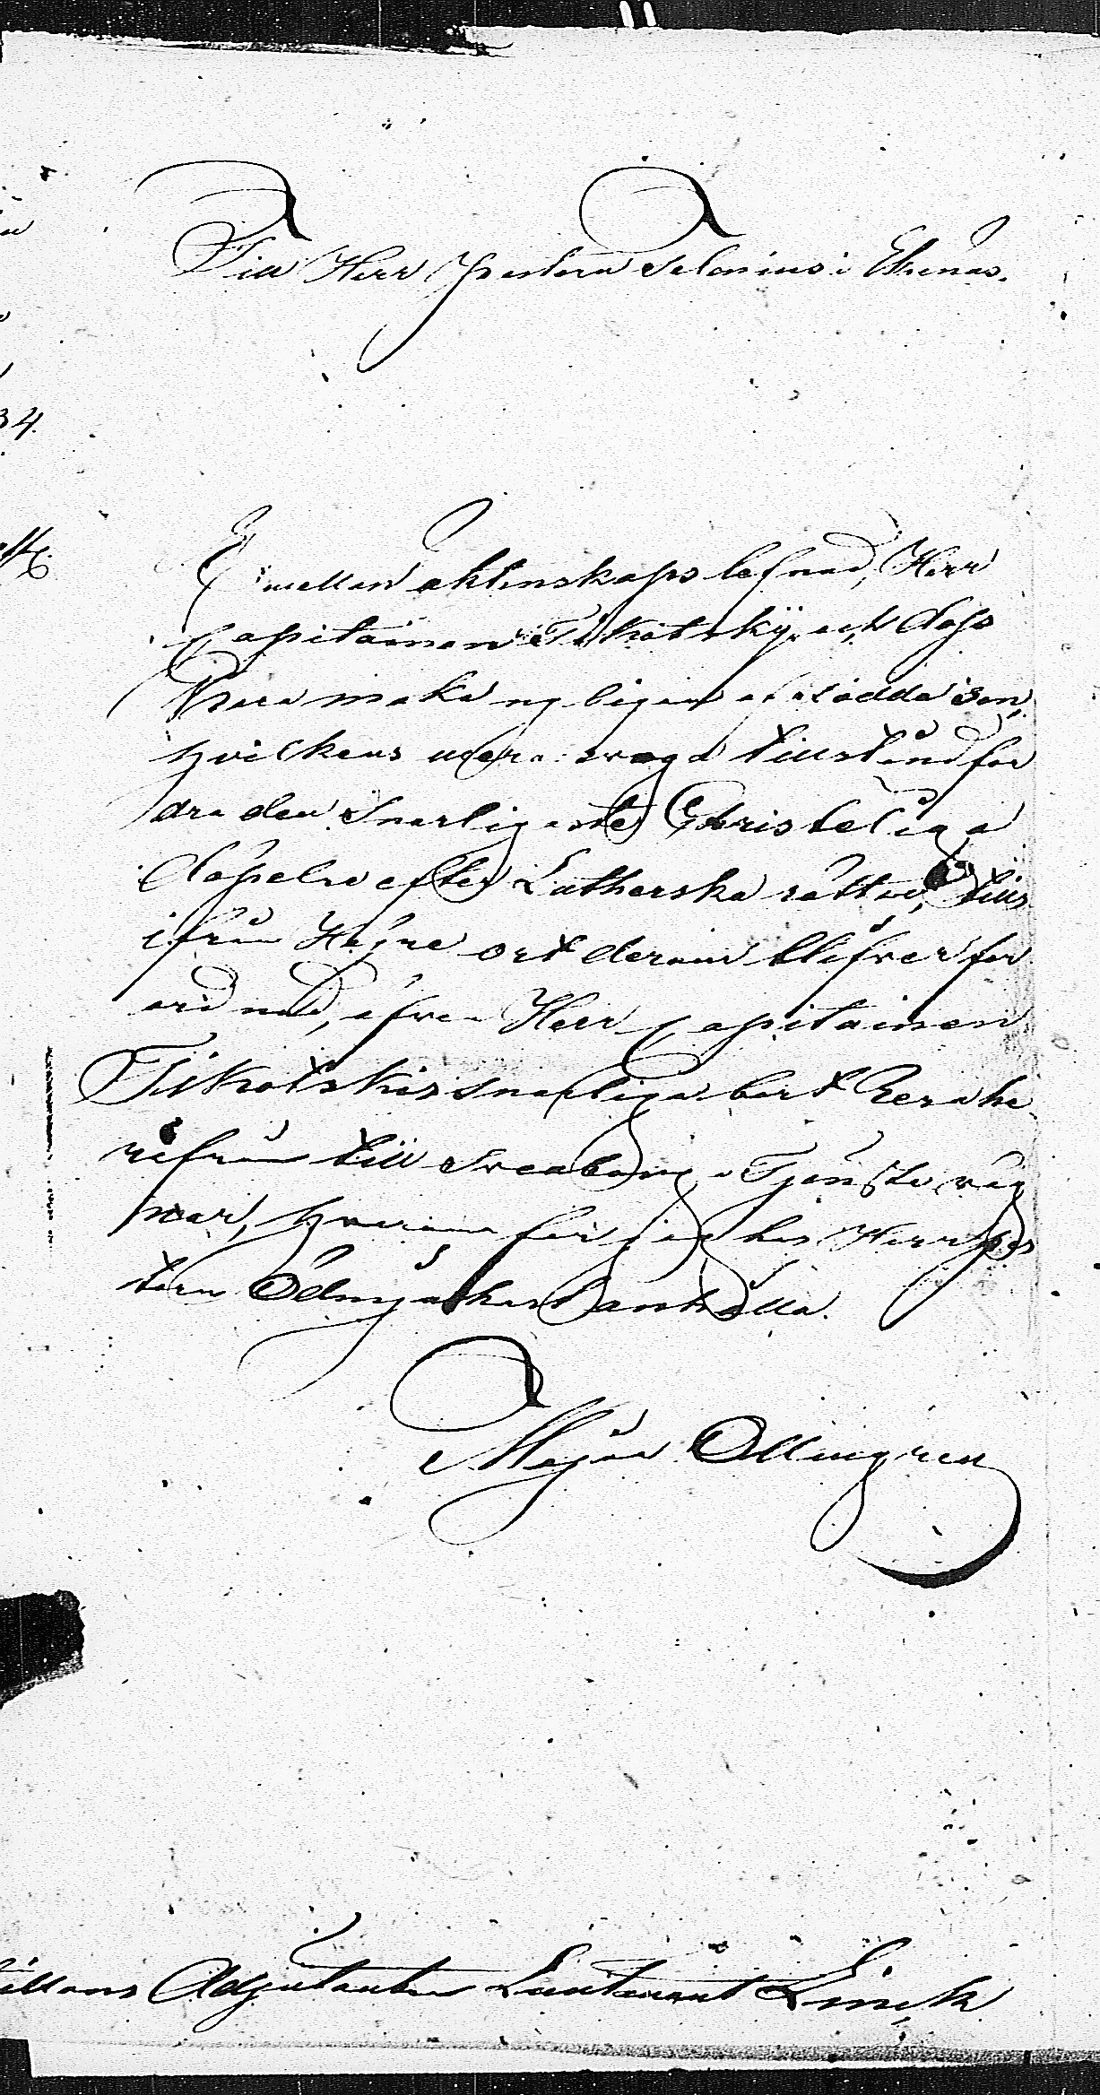 Till Herr Pastorn Selonius i Ekenäs.
Emellan äktenskaps lefnad, Herr
Capitainen Tikotskÿ, och dess
Kära maka nyligen aflödda son,
hvilkens mera svaga tillstånd for
dra den snarligaste Christeliga
döpelse efter Lutherska rättad, tills
ifrån Högre ort derom blifver för
ordnad, äfven Herr Capitainen
Tikotskis snarliga bort resa hä
rifrån till Sveaborg i Tjenste väg
nar, hvarom får jag hos Herr Pas
torn Ödmjukast anhålla.
Major Ollingren
Adjutanten Lieutenant Linck
34.